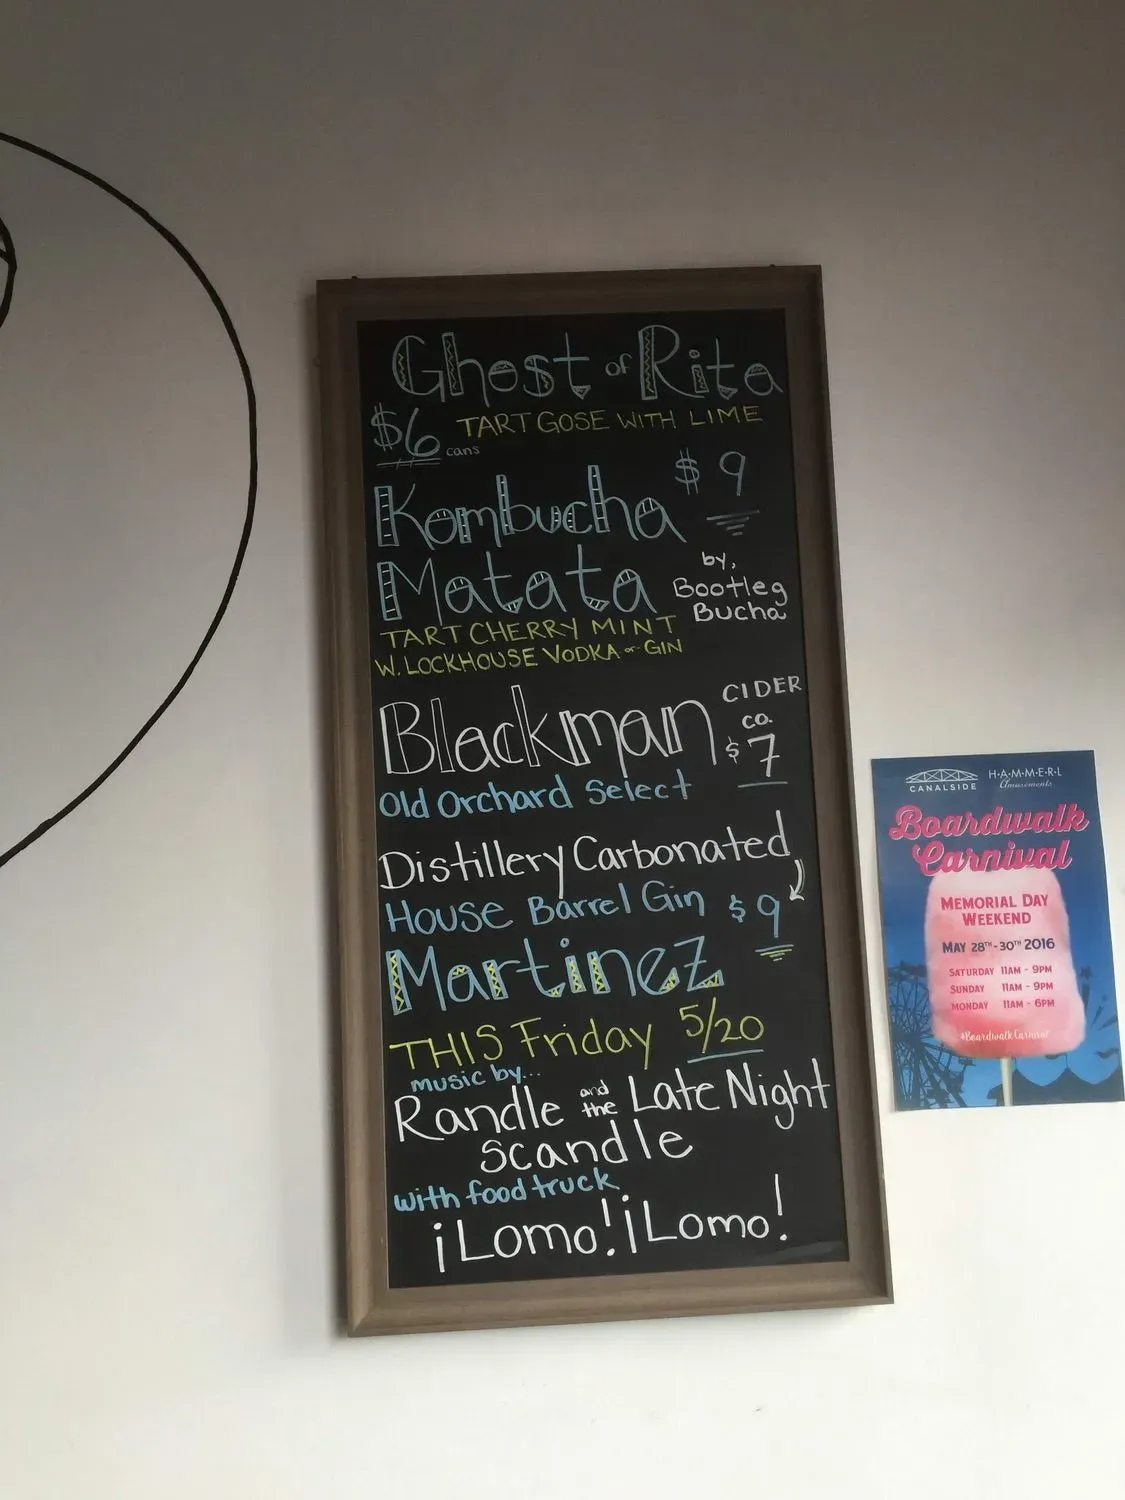 Ghost of Rita
$6 cans TART GOSE WITH LIME
Kombucha $9
Matata by, Bootleg Bucha
TART CHERRY MINT
W. LOCKHOUSE VODKA or GIN
Blackman CIDER co. $7
Old Orchard Select
Distillery Carbonated
House Barrel Gin $9
Martinez
THIS Friday 5/20
music by...
Randle and the Late Night
Scandle
with food truck
¡Lomo! ¡Lomo!
CANALSIDE HAMMERL Amusements
Boardwalk
Carnival
MEMORIAL DAY
WEEKEND
MAY 28TH-30TH 2016
SATURDAY 11AM - 9PM
SUNDAY 11AM - 9PM
MONDAY 11AM - 6PM
#BoardwalkCarnival